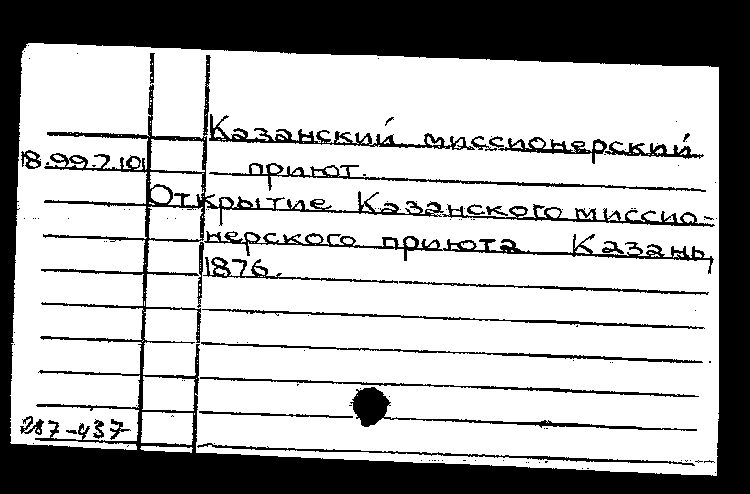 Казанский миссионерский
18.99.7.101 приют.
Открытие Казанского миссио-
нерского приюта. Казань,
1876.
287-437